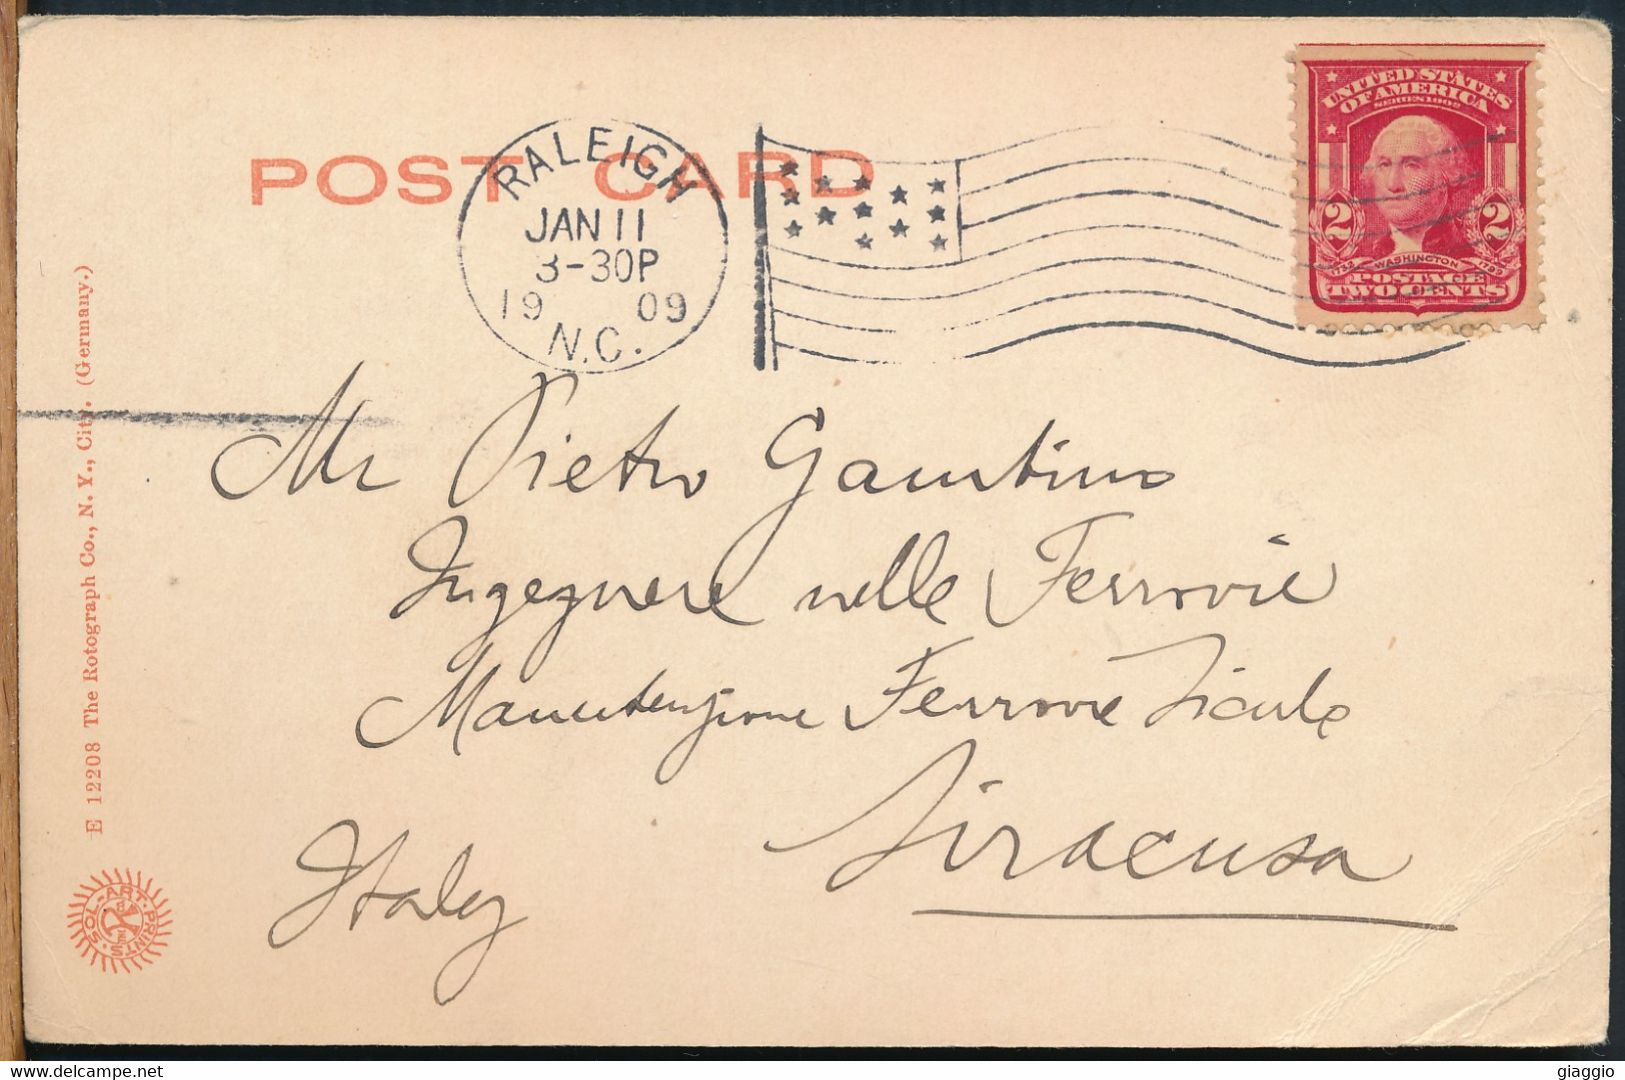 POST CARD
RALEIGH
JAN 11
3-30P
19 09
N.C.
UNITED STATES
OF AMERICA
SERIES 1902
2 2
1732 WASHINGTON 1799
POSTAGE
TWO CENTS
Mr Pietro
Ingegnere nelle Ferrovie
Manutenzione Ferrovie Sicule
Siracusa
Italy
E 12208 The Rotograph Co., N. Y., City. (Germany.)
SOL-ART-PRINTS
delcampe.net
giaggio